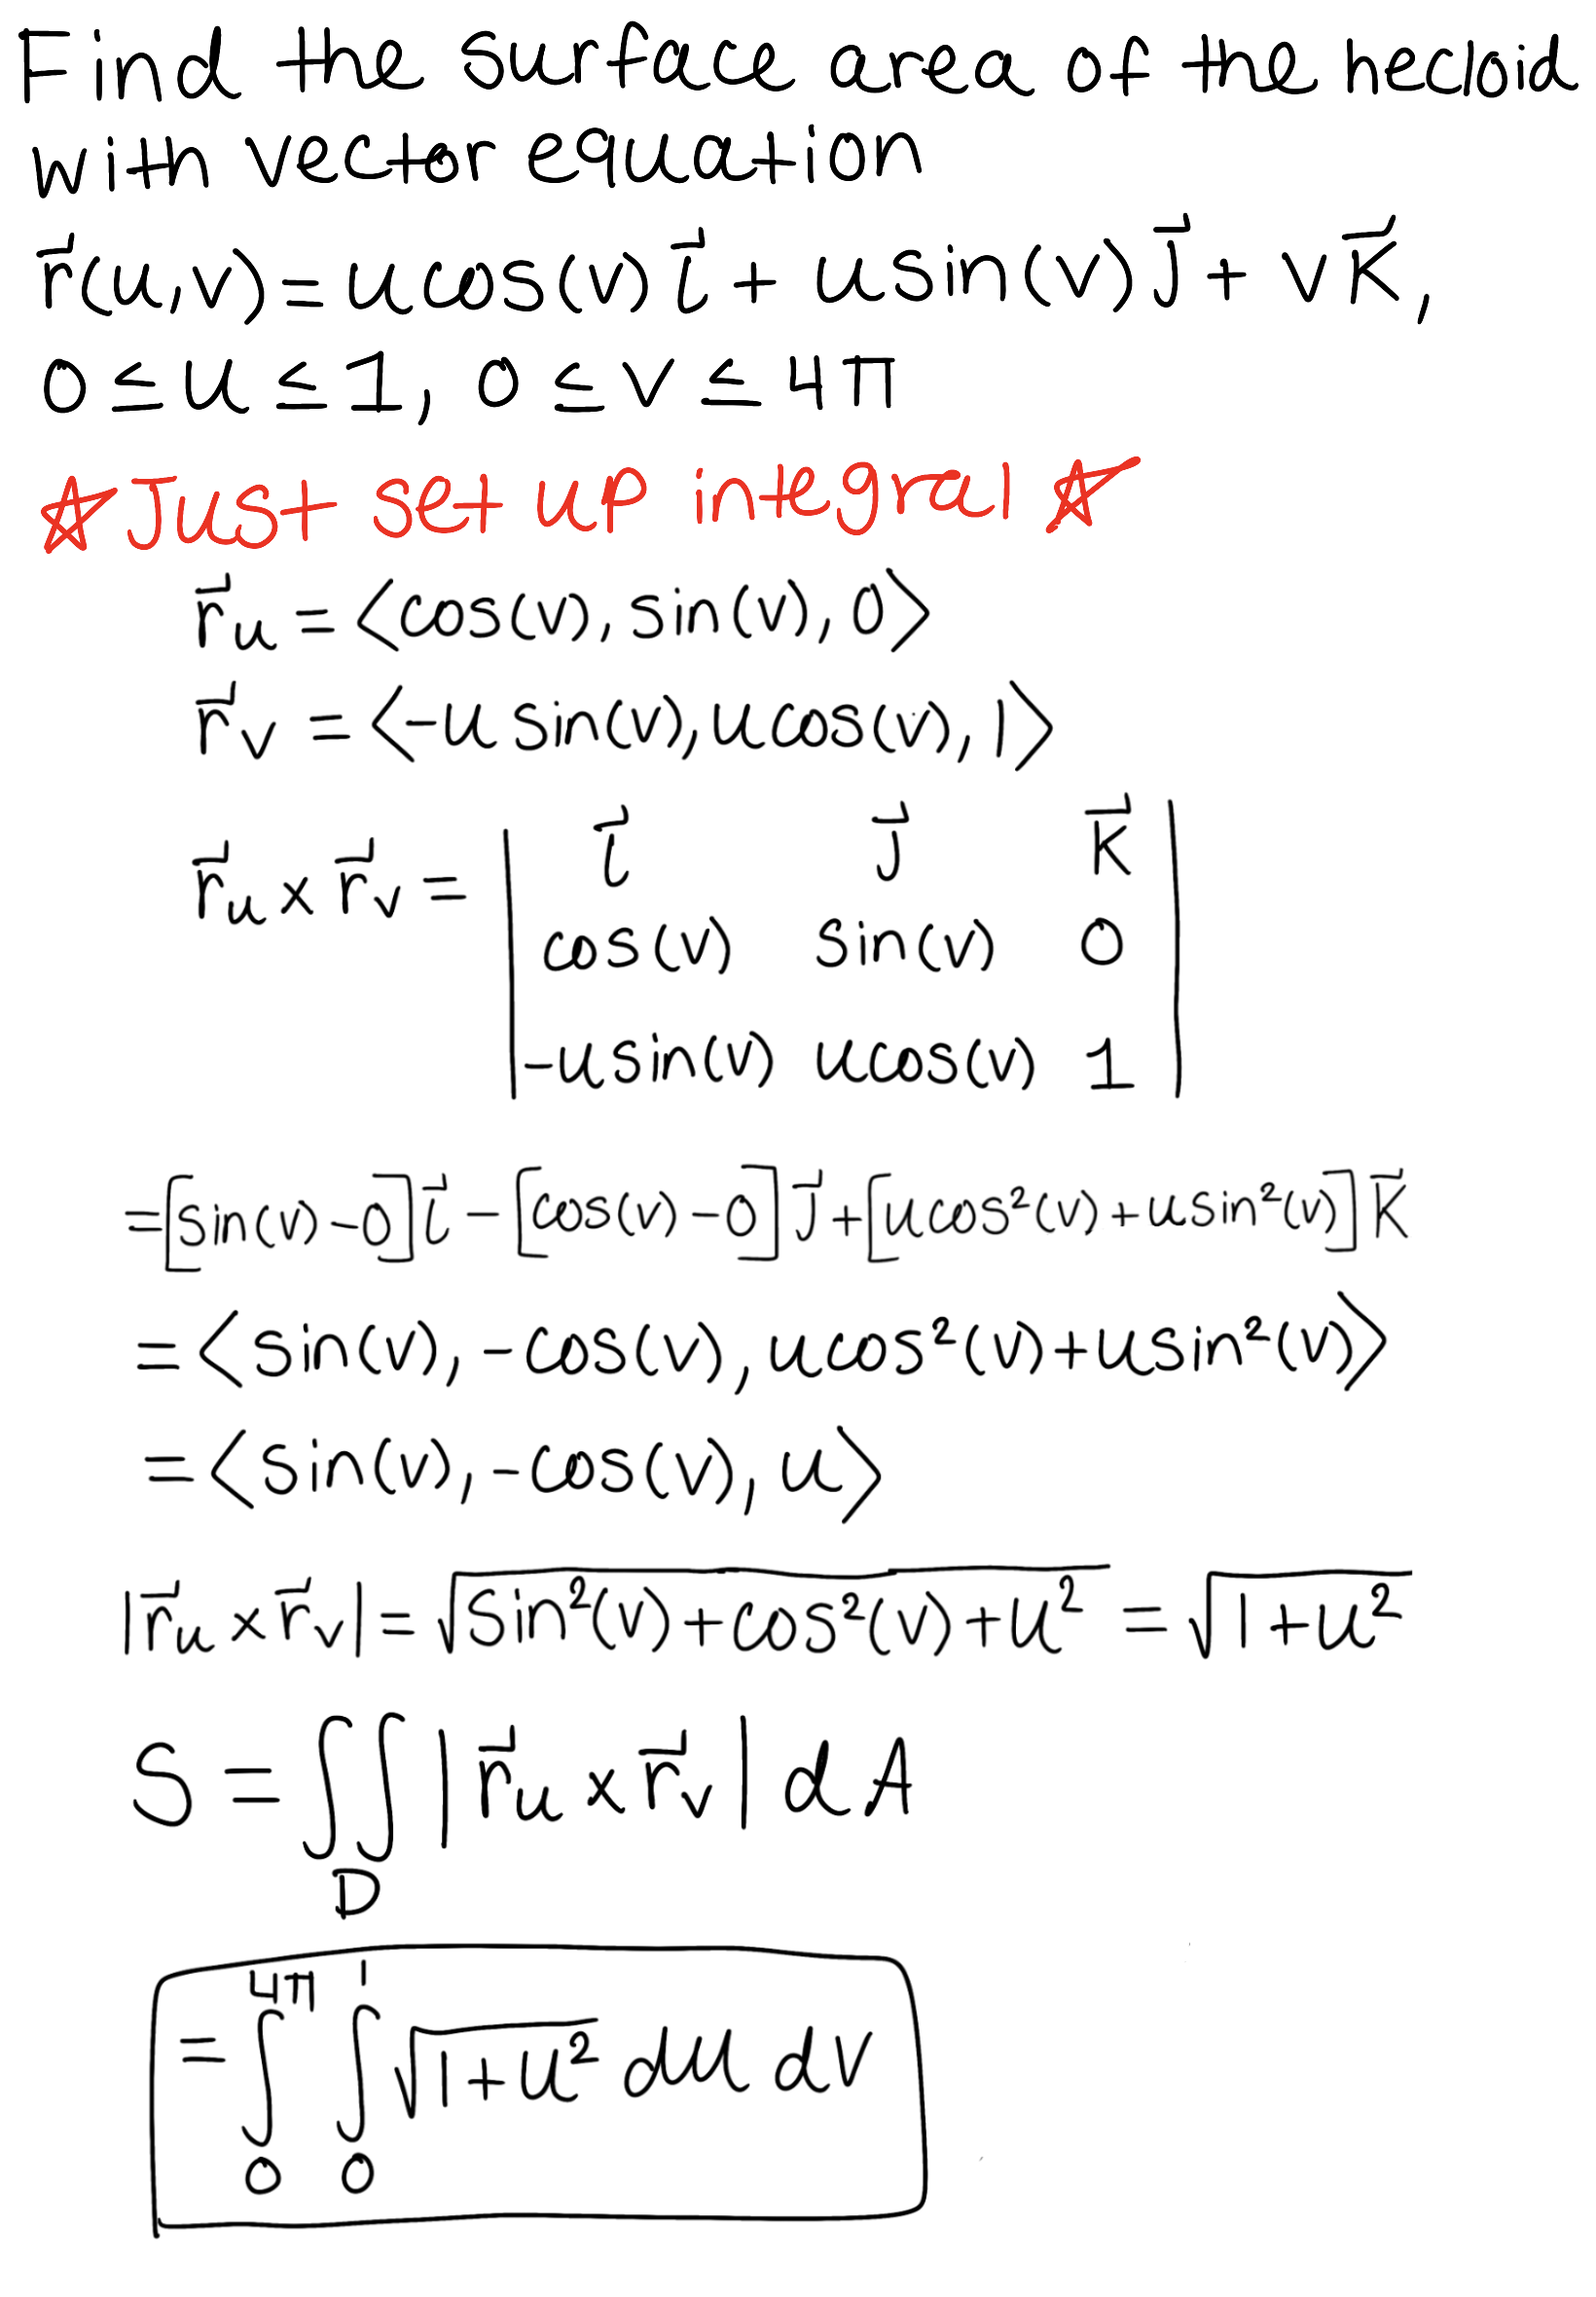 Find the surface area of the hecloid
with vector equation
r⃗(u,v)=ucos(v)i⃗ + usin(v)j⃗ + vk⃗,
0≤u≤1, 0≤v≤4π
☆Just set up integral☆
r⃗u = ⟨cos(v), sin(v), 0⟩
r⃗v = ⟨-usin(v), ucos(v), 1⟩
i⃗ j⃗ k⃗
r⃗u × r⃗v = | cos(v) sin(v) 0 |
-usin(v) ucos(v) 1
=[sin(v)-0]i⃗ - [cos(v)-0]j⃗ + [ucos²(v)+usin²(v)]k⃗
= ⟨sin(v), -cos(v), ucos²(v)+usin²(v)⟩
= ⟨sin(v), -cos(v), u⟩
|r⃗u × r⃗v| = √(sin²(v)+cos²(v)+u²) = √(1+u²)
S = ∬_D |r⃗u × r⃗v| dA
= ∫₀^4π ∫₀^1 √(1+u²) du dv